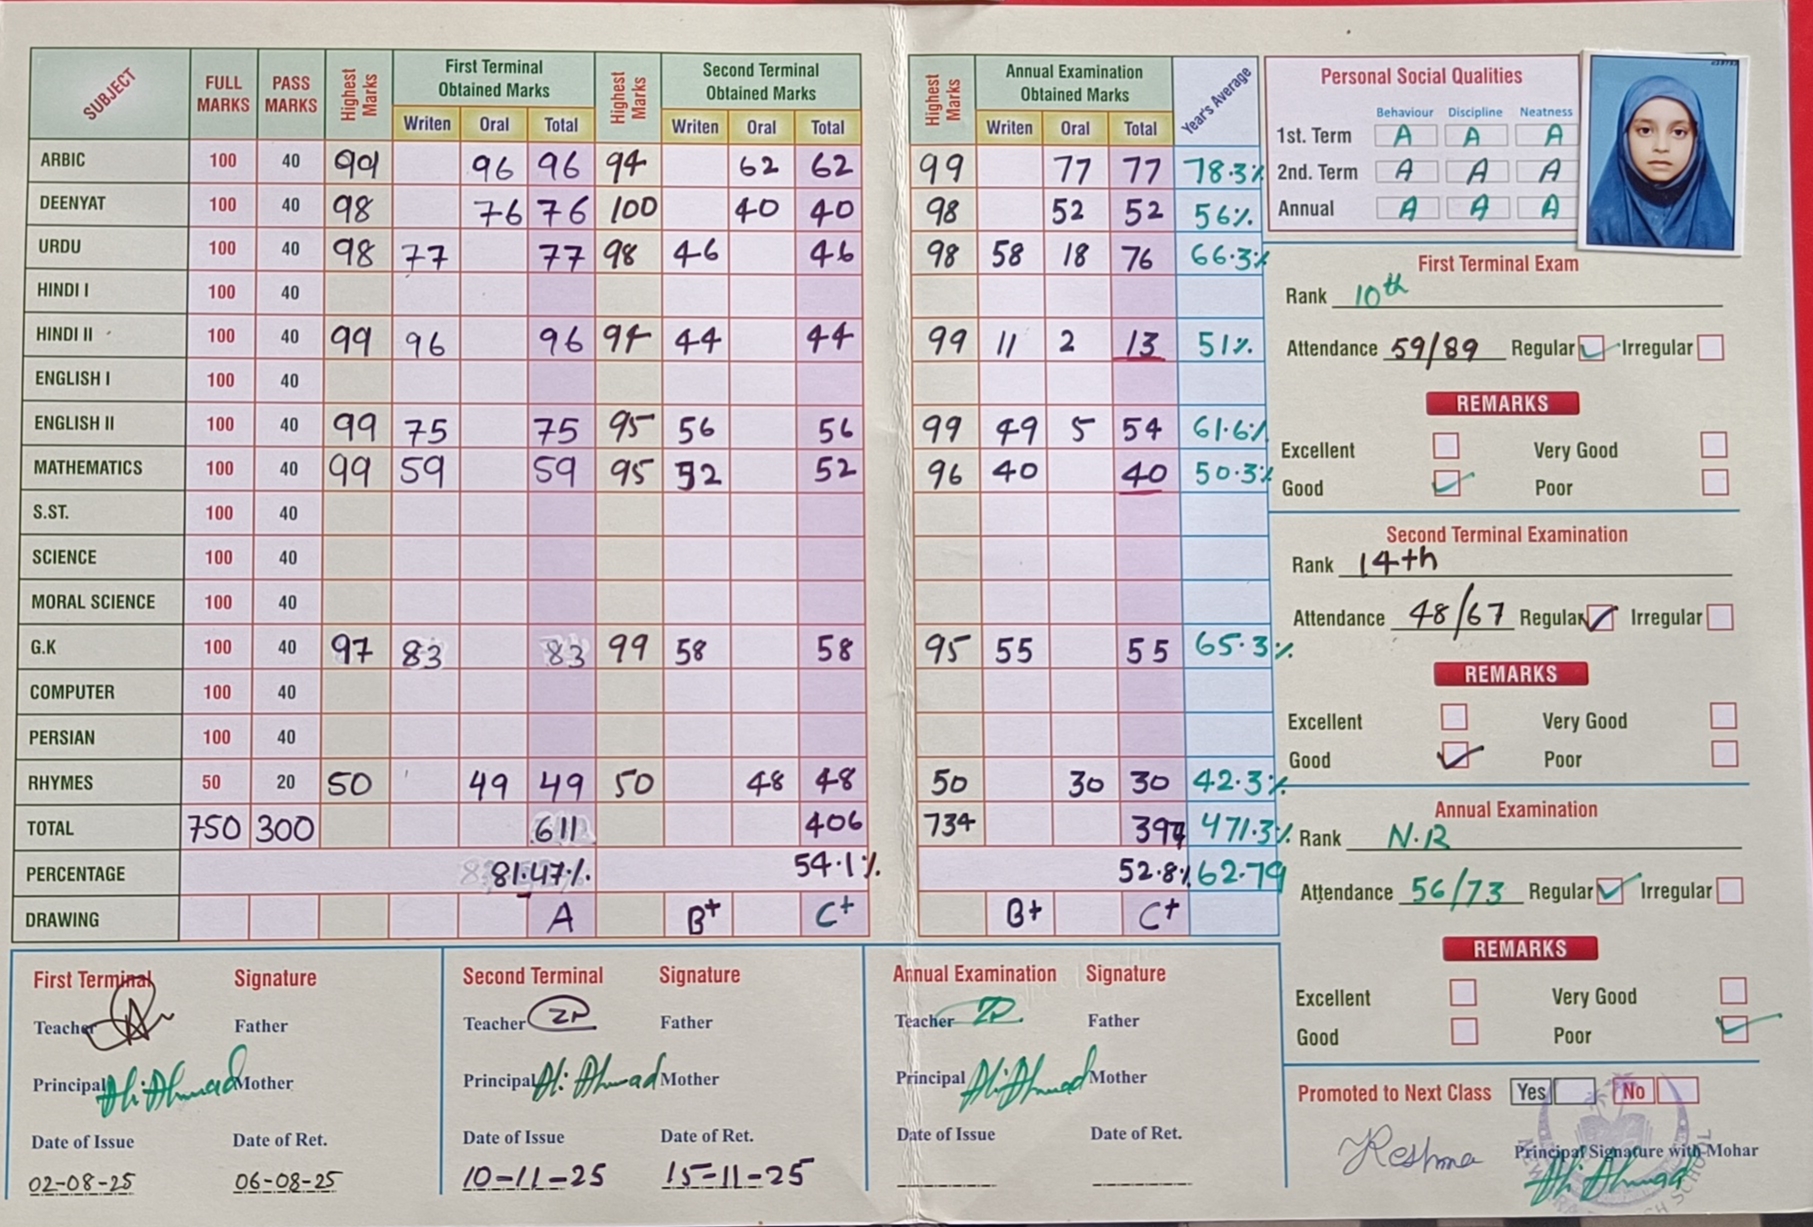 SUBJECT FULL MARKS PASS MARKS Highest Marks First Terminal Obtained Marks Highest Marks Second Terminal Obtained Marks Highest Marks Annual Examination Obtained Marks Year's Average
Writen Oral Total Writen Oral Total Writen Oral Total
ARBIC 100 40 99 96 96 94 62 62 99 77 77 78.3%
DEENYAT 100 40 98 76 76 100 40 40 98 52 52 56%
URDU 100 40 98 77 77 98 46 46 98 58 18 76 66.3%
HINDI I 100 40
HINDI II 100 40 99 96 96 94 44 44 99 11 2 13 51%
ENGLISH I 100 40
ENGLISH II 100 40 99 75 75 95 56 56 99 49 5 54 61.6%
MATHEMATICS 100 40 99 59 59 95 52 52 96 40 40 50.3%
S.ST. 100 40
SCIENCE 100 40
MORAL SCIENCE 100 40
G.K 100 40 97 83 83 99 58 58 95 55 55 65.3%
COMPUTER 100 40
PERSIAN 100 40
RHYMES 50 20 50 49 49 50 48 48 50 30 30 42.3%
TOTAL 750 300 611 406 734 397 471.3%
PERCENTAGE 81.47% 54.1% 52.8% 62.79
DRAWING A B+ C+ B+ C+
Personal Social Qualities
Behaviour Discipline Neatness
1st. Term A A A
2nd. Term A A A
Annual A A A
First Terminal Exam
Rank 10th
Attendance 59/89 Regular Irregular
REMARKS
Excellent Very Good
Good Poor
Second Terminal Examination
Rank 14th
Attendance 48/67 Regular Irregular
REMARKS
Excellent Very Good
Good Poor
Annual Examination
Rank N.R
Attendance 56/73 Regular Irregular
REMARKS
Excellent Very Good
Good Poor
First Terminal Signature
Teacher Father
Principal Ali Ahmad Mother
Date of Issue Date of Ret.
02-08-25 06-08-25
Second Terminal Signature
Teacher ZP Father
Principal Ali Ahmad Mother
Date of Issue Date of Ret.
10-11-25 15-11-25
Annual Examination Signature
Teacher ZP Father
Principal Ali Ahmad Mother
Date of Issue Date of Ret.
Promoted to Next Class Yes No
Reshma Principal Signature with Mohar
Ali Ahmad
NEW SCHOOL